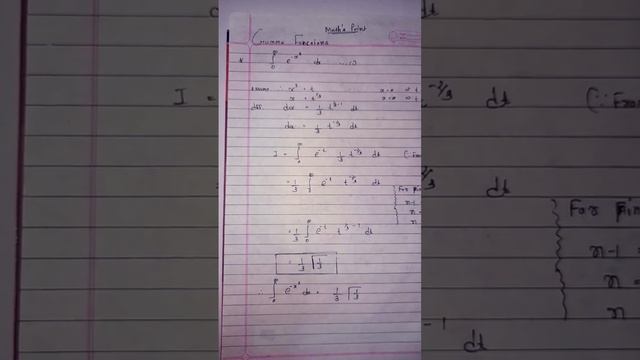 Math's Point
Gamma Functions
* ∫₀^∞ e^{-x³} dx ...(1)
x³ = t
x = t^{1/3}
diff. dx = 1/3 t^{1/3 -1} dt
dx = 1/3 t^{-2/3} dt
I = ∫₀^∞ e^{-t} 1/3 t^{-2/3} dt (∵ From
= 1/3 ∫₀^∞ e^{-t} t^{-2/3} dt
For fin
n-1 =
n =
n
= 1/3 ∫₀^∞ e^{-t} t^{1/3 -1} dt
= 1/3 Γ1/3
∴ ∫₀^∞ e^{-x³} dx = 1/3 Γ1/3